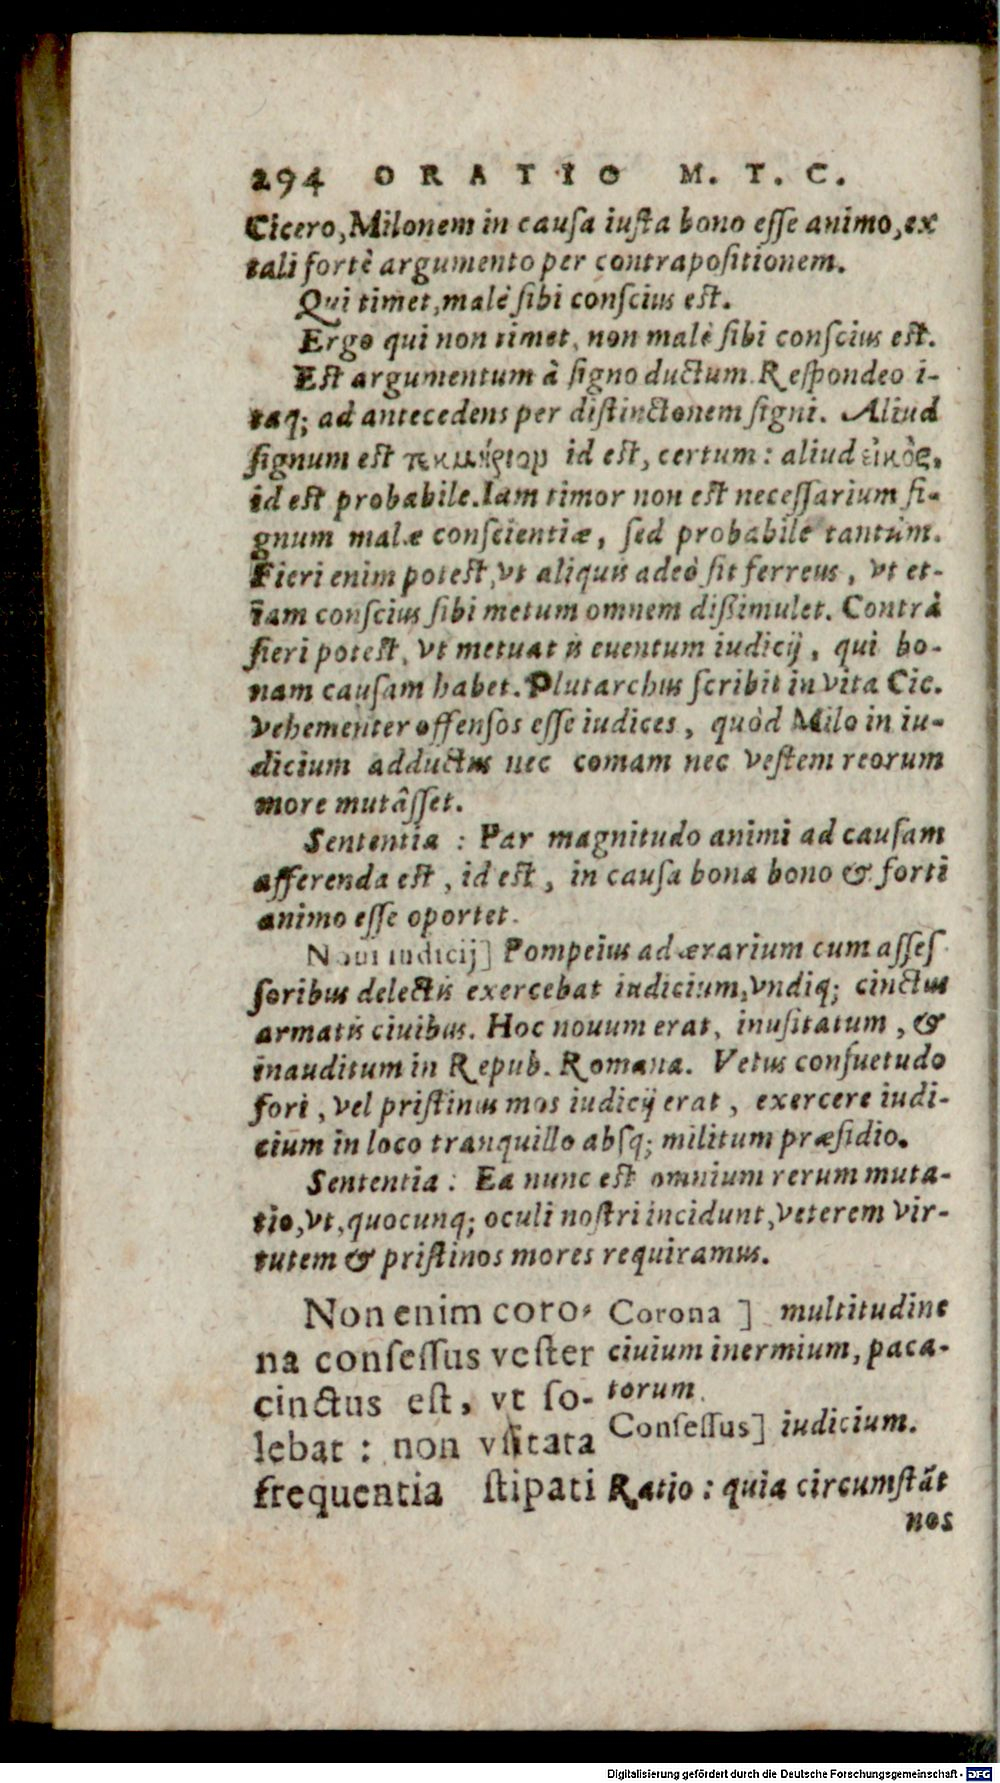 294 ORATIO M. T. C.
Cicero, Milonem in causa iusta bono esse animo, ex
tali fortè argumento per contrapositionem.
Qui timet, malè sibi conscius est.
Ergo qui non timet, non malè sibi conscius est.
Est argumentum à signo ductum. Respondeo i-
taq; ad antecedens per distinctonem signi. Aliud
signum est τεκμήριον id est, certum: aliud εἰκὸς,
id est probabile. Iam timor non est necessarium si-
gnum malæ conscientiæ, sed probabile tantùm.
Fieri enim potest, vt aliquis adeò sit ferreus, vt et-
iam conscius sibi metum omnem dißimulet. Contrà
fieri potest, vt metuat is euentum iudicij, qui bo-
nam causam habet. Plutarchus scribit in vita Cic.
vehementer offensos esse iudices, quòd Milo in iu-
dicium adductus nec comam nec vestem reorum
more mutâsset.
Sententia : Par magnitudo animi ad causam
afferenda est, id est, in causa bona bono & forti
animo esse oportet.
Noui iudicij] Pompeius ad ærarium cum asses
soribus delectis exercebat iudicium, vndiq; cinctus
armatis ciuibus. Hoc nouum erat, inusitatum, &
inauditum in Repub. Romana. Vetus consuetudo
fori, vel pristinus mos iudicij erat, exercere iudi-
cium in loco tranquillo absq; militum præsidio.
Sententia : Ea nunc est omnium rerum muta-
tio, vt, quocunq; oculi nostri incidunt, veterem vir-
tutem & pristinos mores requiramus.
Non enim coro-
na consessus vester
cinctus est, vt so-
lebat : non vsitata
frequentia stipati
Corona ] multitudine
ciuium inermium, paca-
torum.
Consessus] iudicium.
Ratio : quia circumstāt
nos
Digitalisierung gefördert durch die Deutsche Forschungsgemeinschaft - DFG